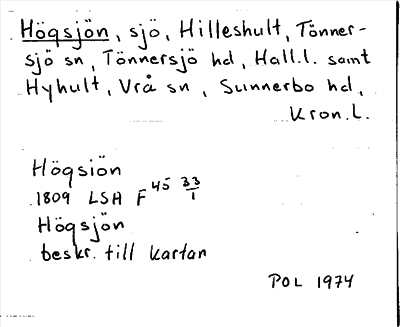 Högsjön, sjö, Hilleshult, Tönner-
sjö sn, Tönnersjö hd, Hall.l. samt
Hyhult, Vrå sn, Sunnerbo hd,
Kron.L.
Högsiön
1809 LSA F 45 33/1
Högsjön
beskr. till kartan
POL 1974